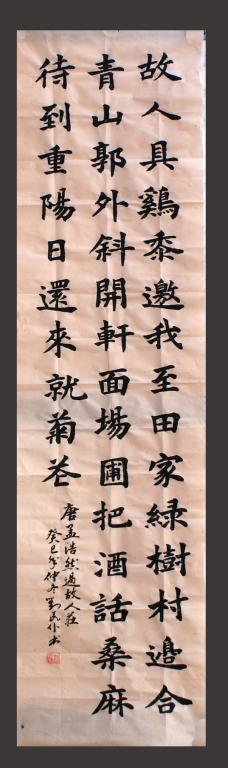 故人具鷄黍邀我至田家綠樹村邊合
青山郭外斜開軒面場圃把酒話桑麻
待到重陽日還來就菊花
唐孟浩然過故人莊
癸巳年仲冬劉民作書